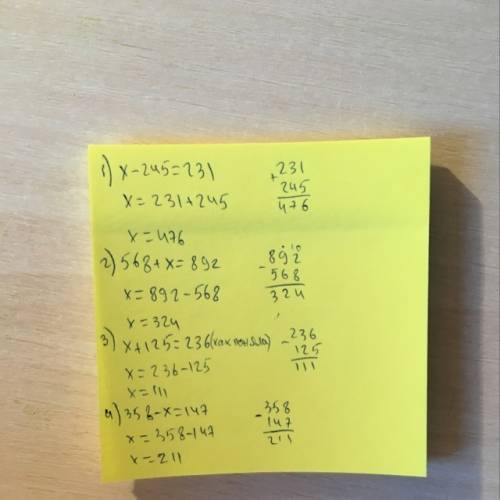 1) x-245=231
x=231+245
x=476
+231
245
476
2) 568+x=892
x=892-568
x=324
. 10
-892
568
324
3) x+125=236 (как поняла)
x=236-125
x=111
-236
125
111
4) 358-x=147
x=358-147
x=211
-358
147
211